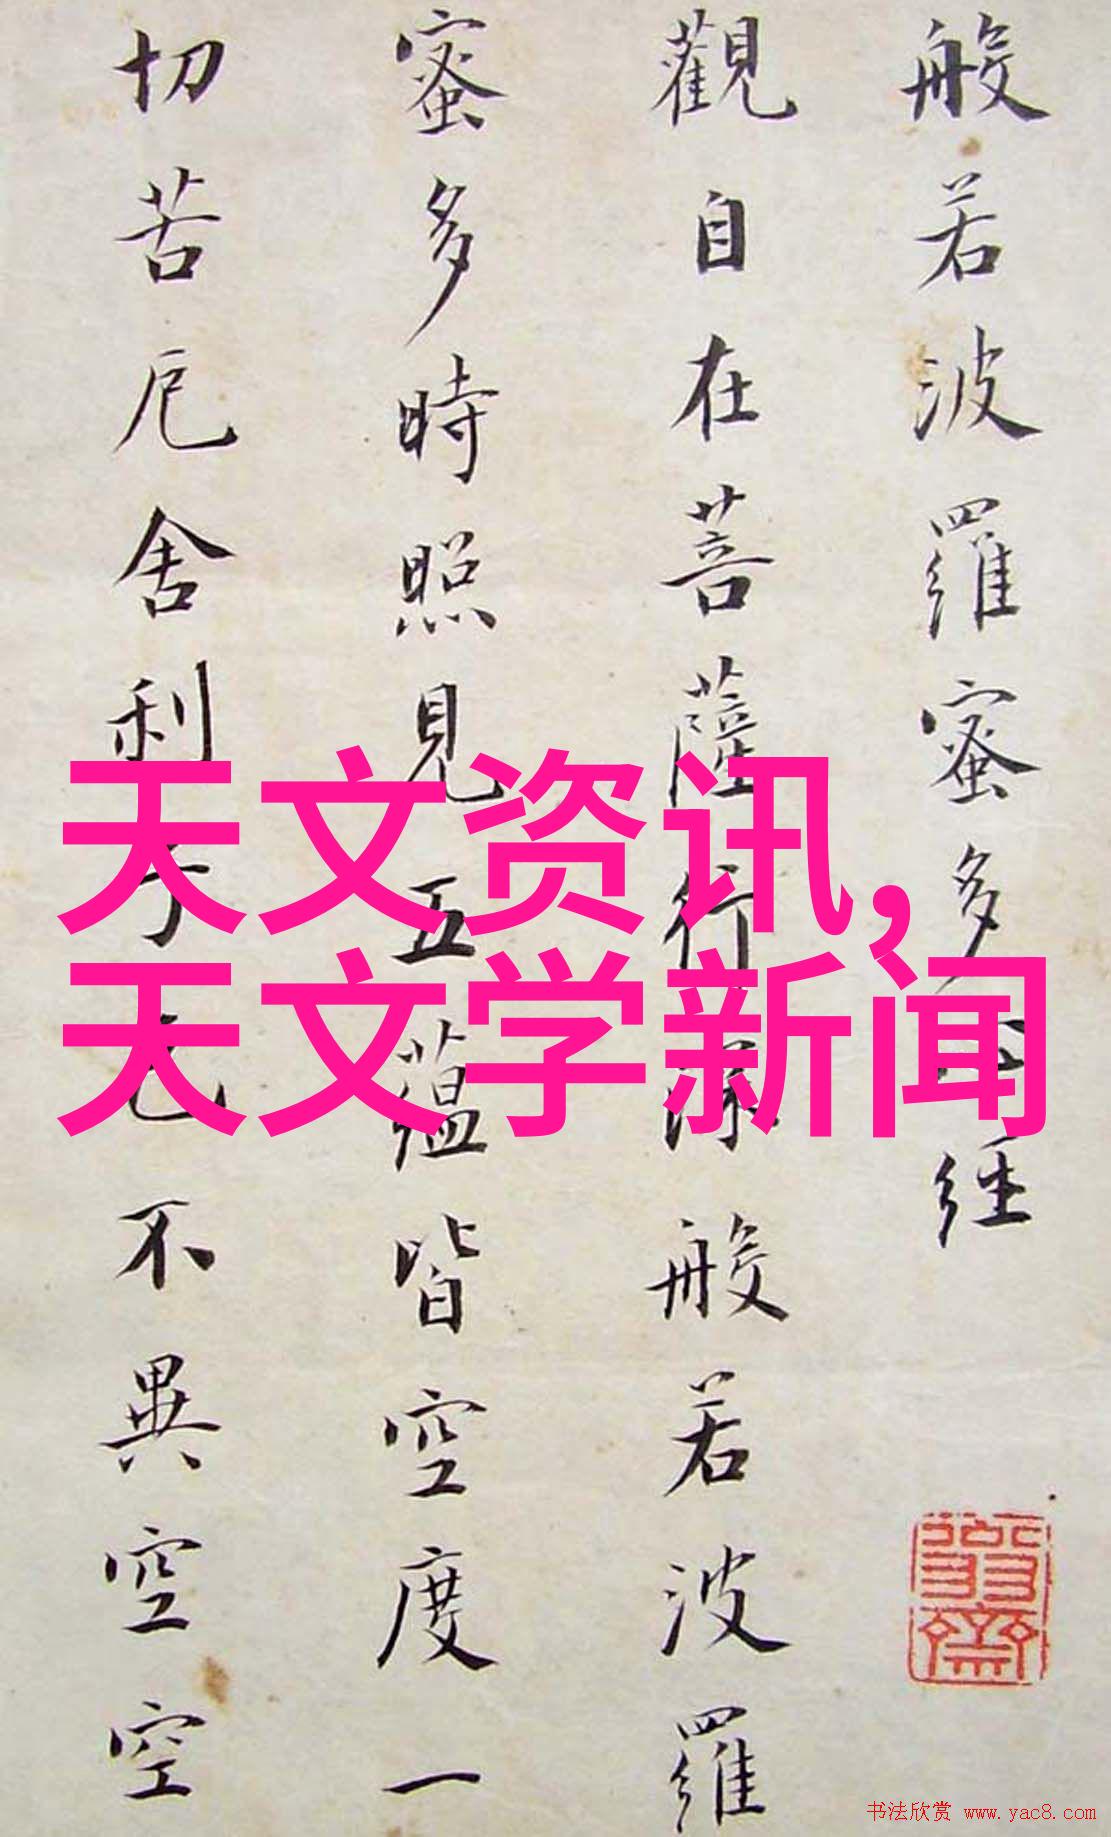 般若波羅蜜多心經
觀自在菩薩行深般若波羅
蜜多時照見五蘊皆空度一
切苦厄舍利子色不異空空
天文资讯,
天文学新闻
书法欣赏 www.yac8.com